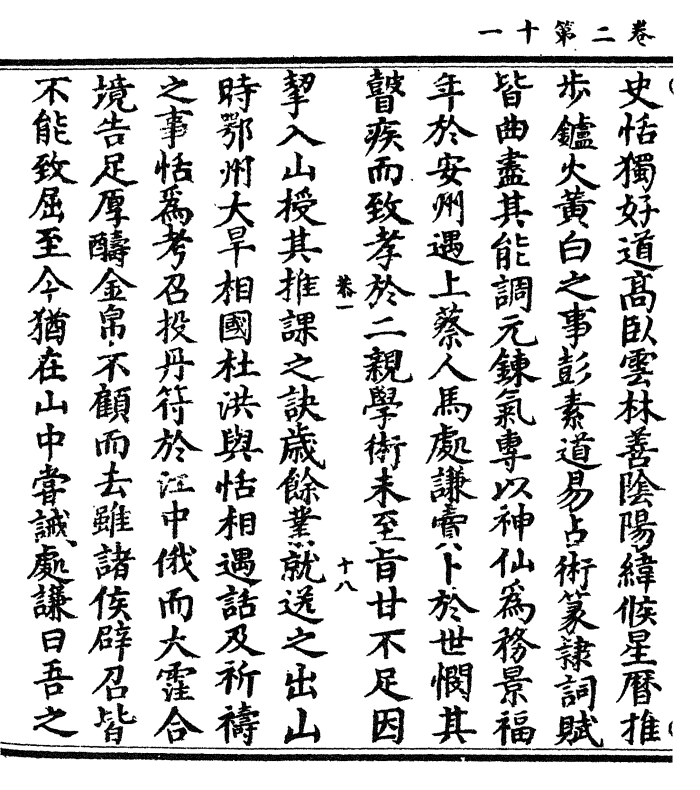 卷二第十一
史恬獨好道高臥雲林善陰陽緯候星曆推
步鑪火黃白之事彭素道易占術篆隸詞賦
皆曲盡其能調元鍊氣專以神仙爲務景福
年於安州遇上蔡人馬處謙賣卜於世憫其
瞽疾而致孝於二親學術未至旨甘不足因
卷一 十八
挈入山授其推課之訣歲餘業就送之出山
時鄂州大旱相國杜洪與恬相遇話及祈禱
之事恬爲考召投丹符於江中俄而大霔合
境告足厚酬金帛不顧而去雖諸侯辟召皆
不能致屈至今猶在山中嘗誡處謙曰吾之